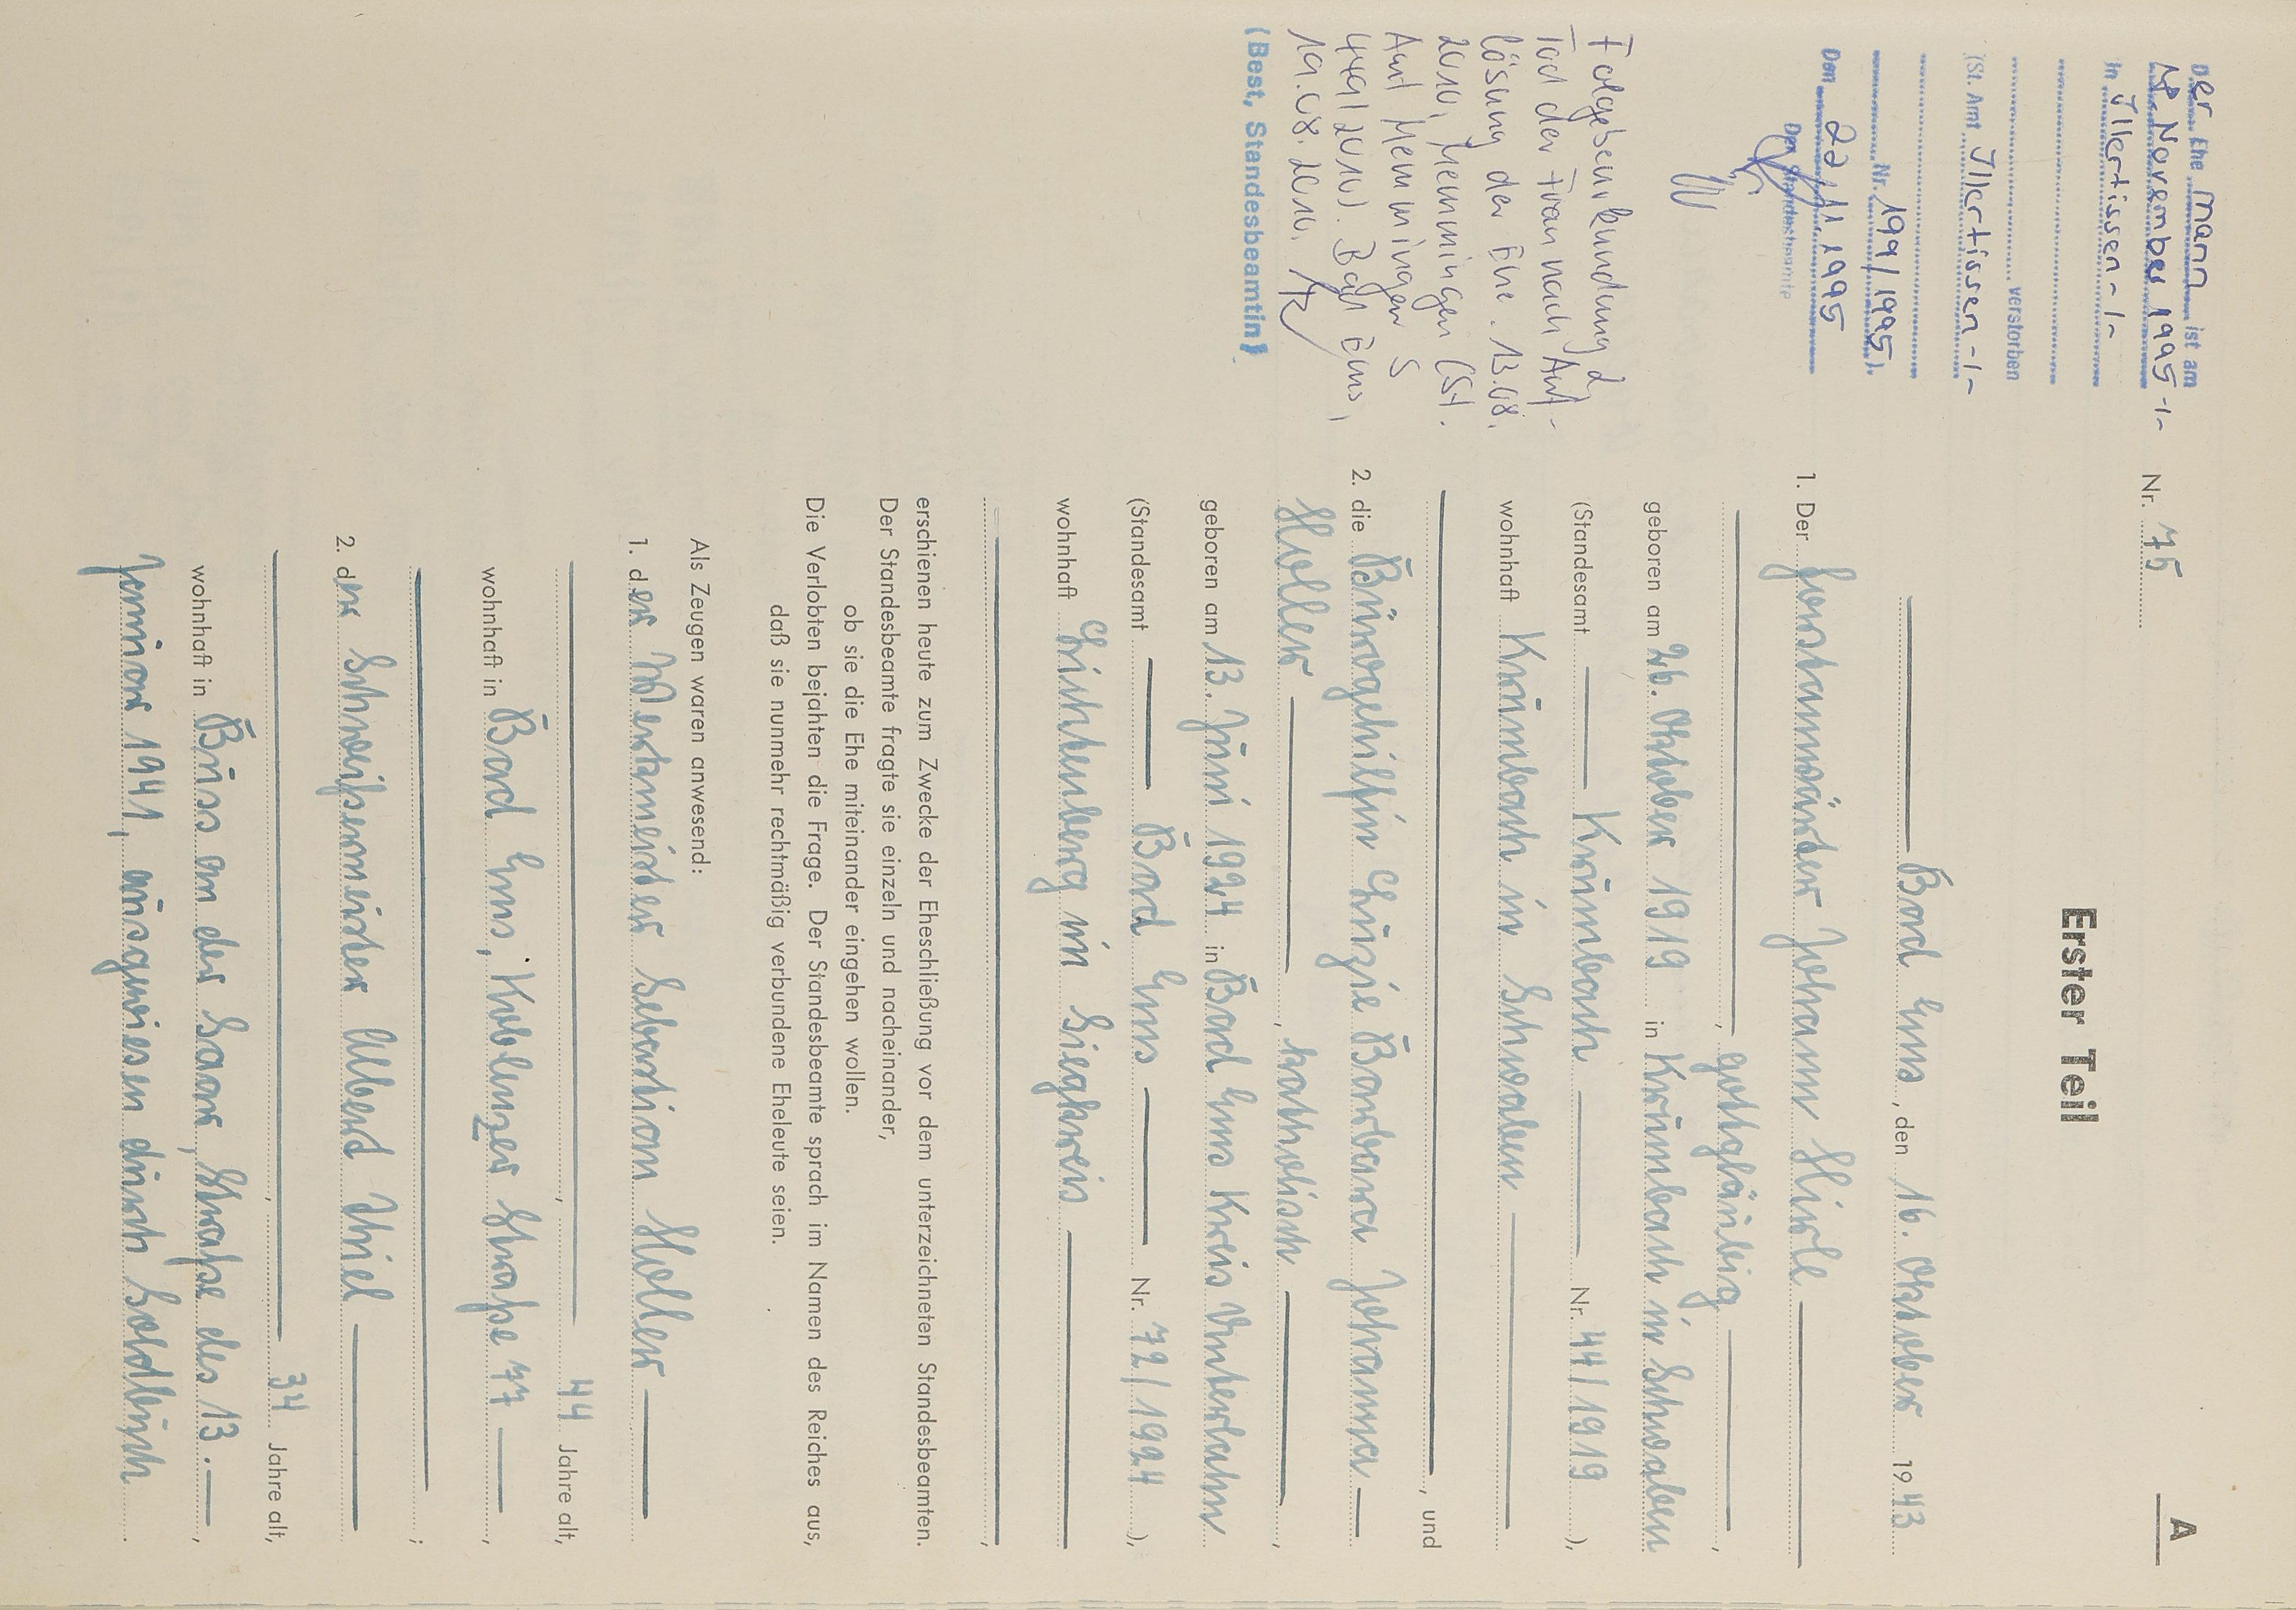 A
Nr. 75
Erster Teil
Bad Ems, den 16. Oktober 1943
1. Der Forstanwärter Johann Hirle
, gottgläubig,
geboren am 26. Oktober 1919 in Krumbach in Schwaben
(Standesamt Krumbach Nr. 44/1919),
wohnhaft Krumbach in Schwaben
, und
2. die Bürogehilfin Luzie Barbara Johanna
Holler, katholisch,
geboren am 13. Juni 1924 in Bad Ems Kreis Unterlahn
(Standesamt Bad Ems Nr. 72/1924),
wohnhaft Lichtenberg im Siegkreis
,
erschienen heute zum Zwecke der Eheschließung vor dem unterzeichneten Standesbeamten.
Der Standesbeamte fragte sie einzeln und nacheinander,
ob sie die Ehe miteinander eingehen wollen.
Die Verlobten bejahten die Frage. Der Standesbeamte sprach im Namen des Reiches aus,
daß sie nunmehr rechtmäßig verbundene Eheleute seien.
Als Zeugen waren anwesend:
1. der Werkmeister Sebastian Holler
, 44 Jahre alt,
wohnhaft in Bad Ems, Koblenzer Straße 77,
;
2. der Schweißermeister Albert Thiel
, 34 Jahre alt,
wohnhaft in Buss an der Saar, Straße des 13.,
Januar 1941, ausgewiesen durch Soldbuch.
Der Ehemann ist am
November 1995 -/-
in Illertissen -/-
verstorben
(St. Amt Illertissen -/-
Nr. 199/1995).
Den 22.11.1995
Der Standesbeamte
Folgebeurkundung d.
Tod der Frau nach Auf-
lösung der Ehe. 13.08.
2010, Memmingen (St.
Amt Memmingen S
449/2010). Bad Ems,
19.08.2010.
(Best, Standesbeamtin)